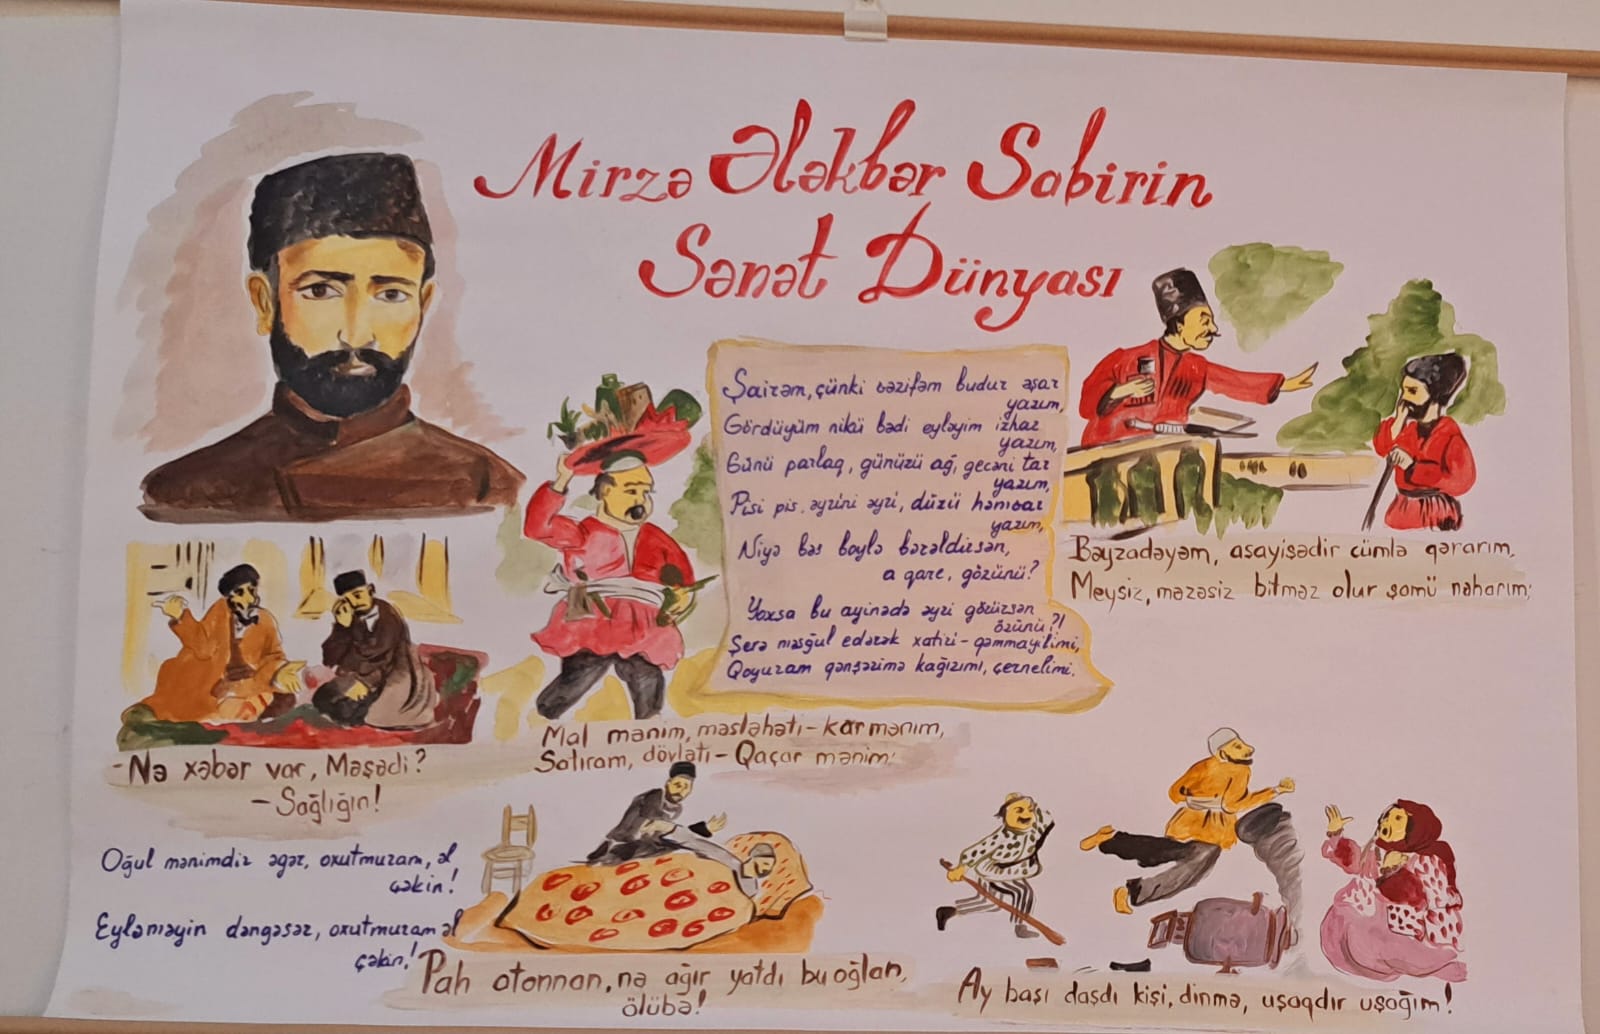 Mirzə Ələkbər Sabirin
Sənət Dünyası
Şairəm, çünki vəzifəm budur əşar
yazım,
Gördüyüm nikü bədi eyləyim izhar
yazım,
Günü parlaq, günüzü ağ, gecəni tar
yazım,
Pisi pis, əyrini əyri, düzü həmvar
yazım,
Niyə bəs boylə bərəldirsən,
a qare, gözünü?
Yoxsa bu ayinədə əyri görürsən
özünü?!
Şerə məşğul edərək xatiri-qəmmayilimi,
Qoyuram qənşərimə kağızımı, çernelimi.
Bəyzadəyəm, asayişədir cümlə qərarım,
Meysiz, məzəsiz bitməz olur şamü nəharım;
Mal mənim, məsləhəti-kar mənim,
Satıram, dövləti-Qaçar mənim;
-Nə xəbər var, Məşədi?
-Sağlığın!
Oğul mənimdir əgər, oxutmuram, əl
çəkin!
Eyləməyin dəngəsər, oxutmuram əl
çəkin!
Pah atonnan, nə ağır yatdı bu oğlan,
ölübə!
Ay başı daşdı kişi, dinmə, uşaqdır uşağım!